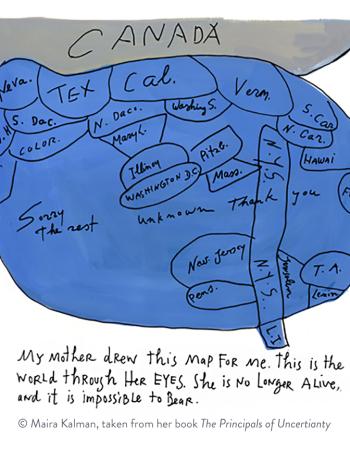 CANADA
Neva.
TEX
Cal.
Verm.
S. Dac.
N. Daco.
Washing S.
S. Car
N. Car.
COLOR.
Maryl.
HAWAI
Illinoy
Pitzb.
WASHINGTON D.C.
Mass.
N.Y.S.
Sorry
the rest
unknown
Thank
you
New Jersey
N.Y.S.
Jerusalem
T.A.
Pens.
Lenin
L.I.
My MOTHER DREW THIS MAP FOR ME. THIS IS THE
WORLD THROUGH HER EYES. SHE IS NO LONGER ALIVE,
and it is impossible to BEAR.
© Maira Kalman, taken from her book The Principals of Uncertianty